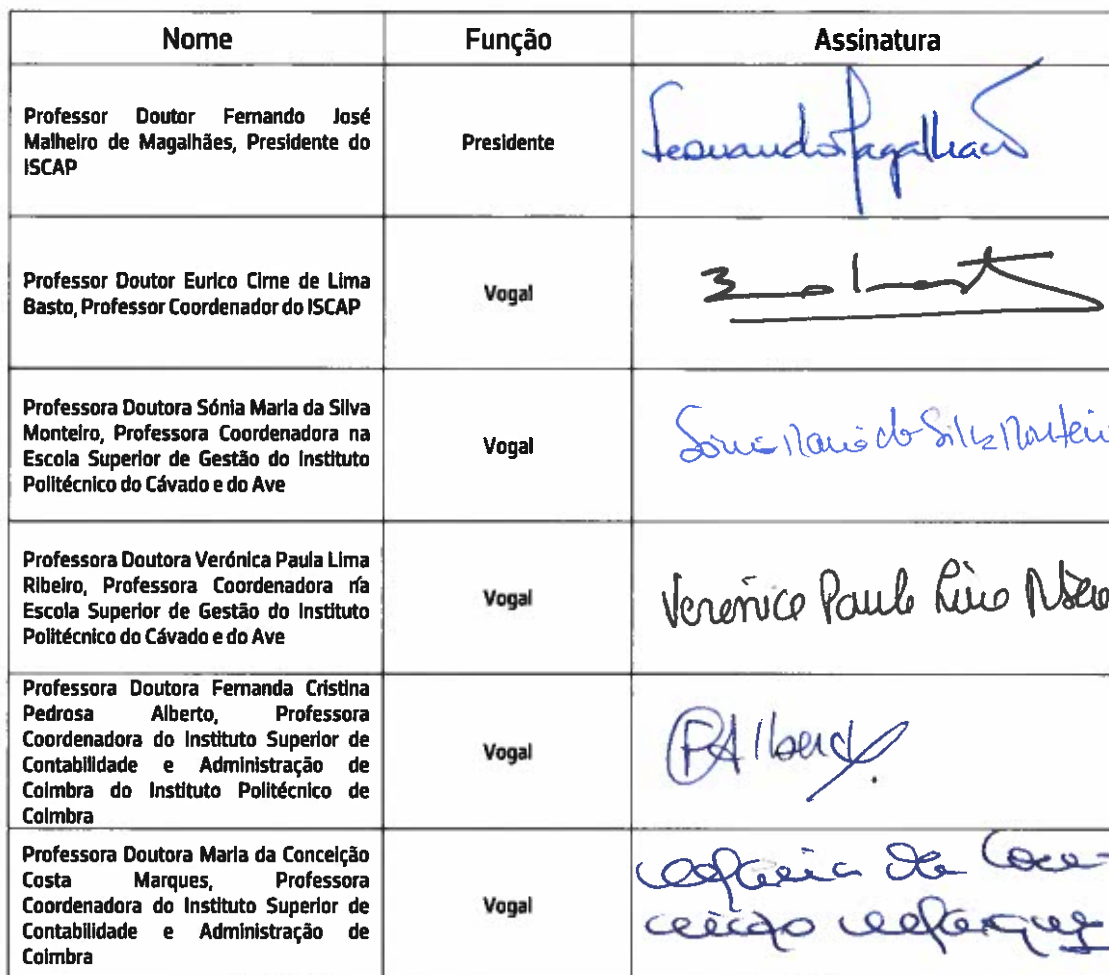 Nome Função Assinatura
Professor Doutor Fernando José
Malheiro de Magalhães, Presidente do
ISCAP
Presidente
Fernando Magalhães
Professor Doutor Eurico Cirne de Lima
Basto, Professor Coordenador do ISCAP
Vogal
Professora Doutora Sónia Maria da Silva
Monteiro, Professora Coordenadora na
Escola Superior de Gestão do Instituto
Politécnico do Cávado e do Ave
Vogal
Sónia Maria da Silva Monteiro
Professora Doutora Verónica Paula Lima
Ribeiro, Professora Coordenadora na
Escola Superior de Gestão do Instituto
Politécnico do Cávado e do Ave
Vogal
Verónica Paula Lima
Professora Doutora Fernanda Cristina
Pedrosa Alberto, Professora
Coordenadora do Instituto Superior de
Contabilidade e Administração de
Coimbra do Instituto Politécnico de
Coimbra
Vogal
FAlberto
Professora Doutora Maria da Conceição
Costa Marques, Professora
Coordenadora do Instituto Superior de
Contabilidade e Administração de
Coimbra
Vogal
Maria da Con-
ceição Marques